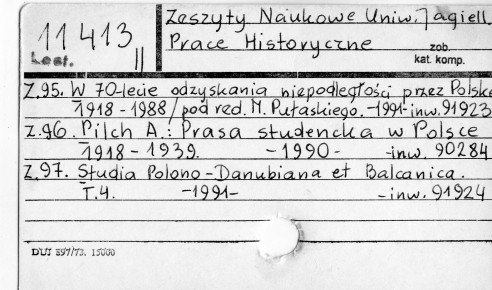 Zeszyty Naukowe Uniw. Jagiell.
11 413 II
Prace Historyczne
zob.
kat. komp.
Z.95. W 70-lecie odzyskania niepodległości przez Polskę
1918 - 1988 / pod red. M. Pułaskiego. -1991- inw. 91923
Z.96. Pilch A.: Prasa studencka w Polsce
1918 - 1939. -1990- -inw. 90284
Z.97. Studia Polono-Danubiana et Balcanica.
T.4. -1991- -inw. 91924
DUJ 897/73. 15000